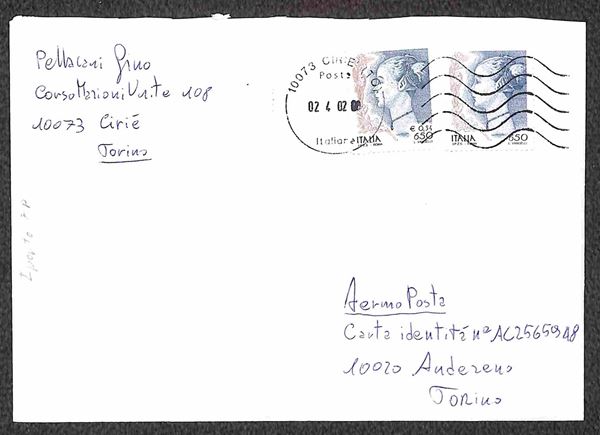 Pellacani Gino
Corso Nazioni Unite 108
10073 Cirié
Torino
10073 CIRIE' (TO)
Poste
02 4 02
Italiane
€ 0,34
ITALIA 650
ITALIA 650
Fermo Posta
Carta identitá nº AC2565948
10020 Andezeno
Torino